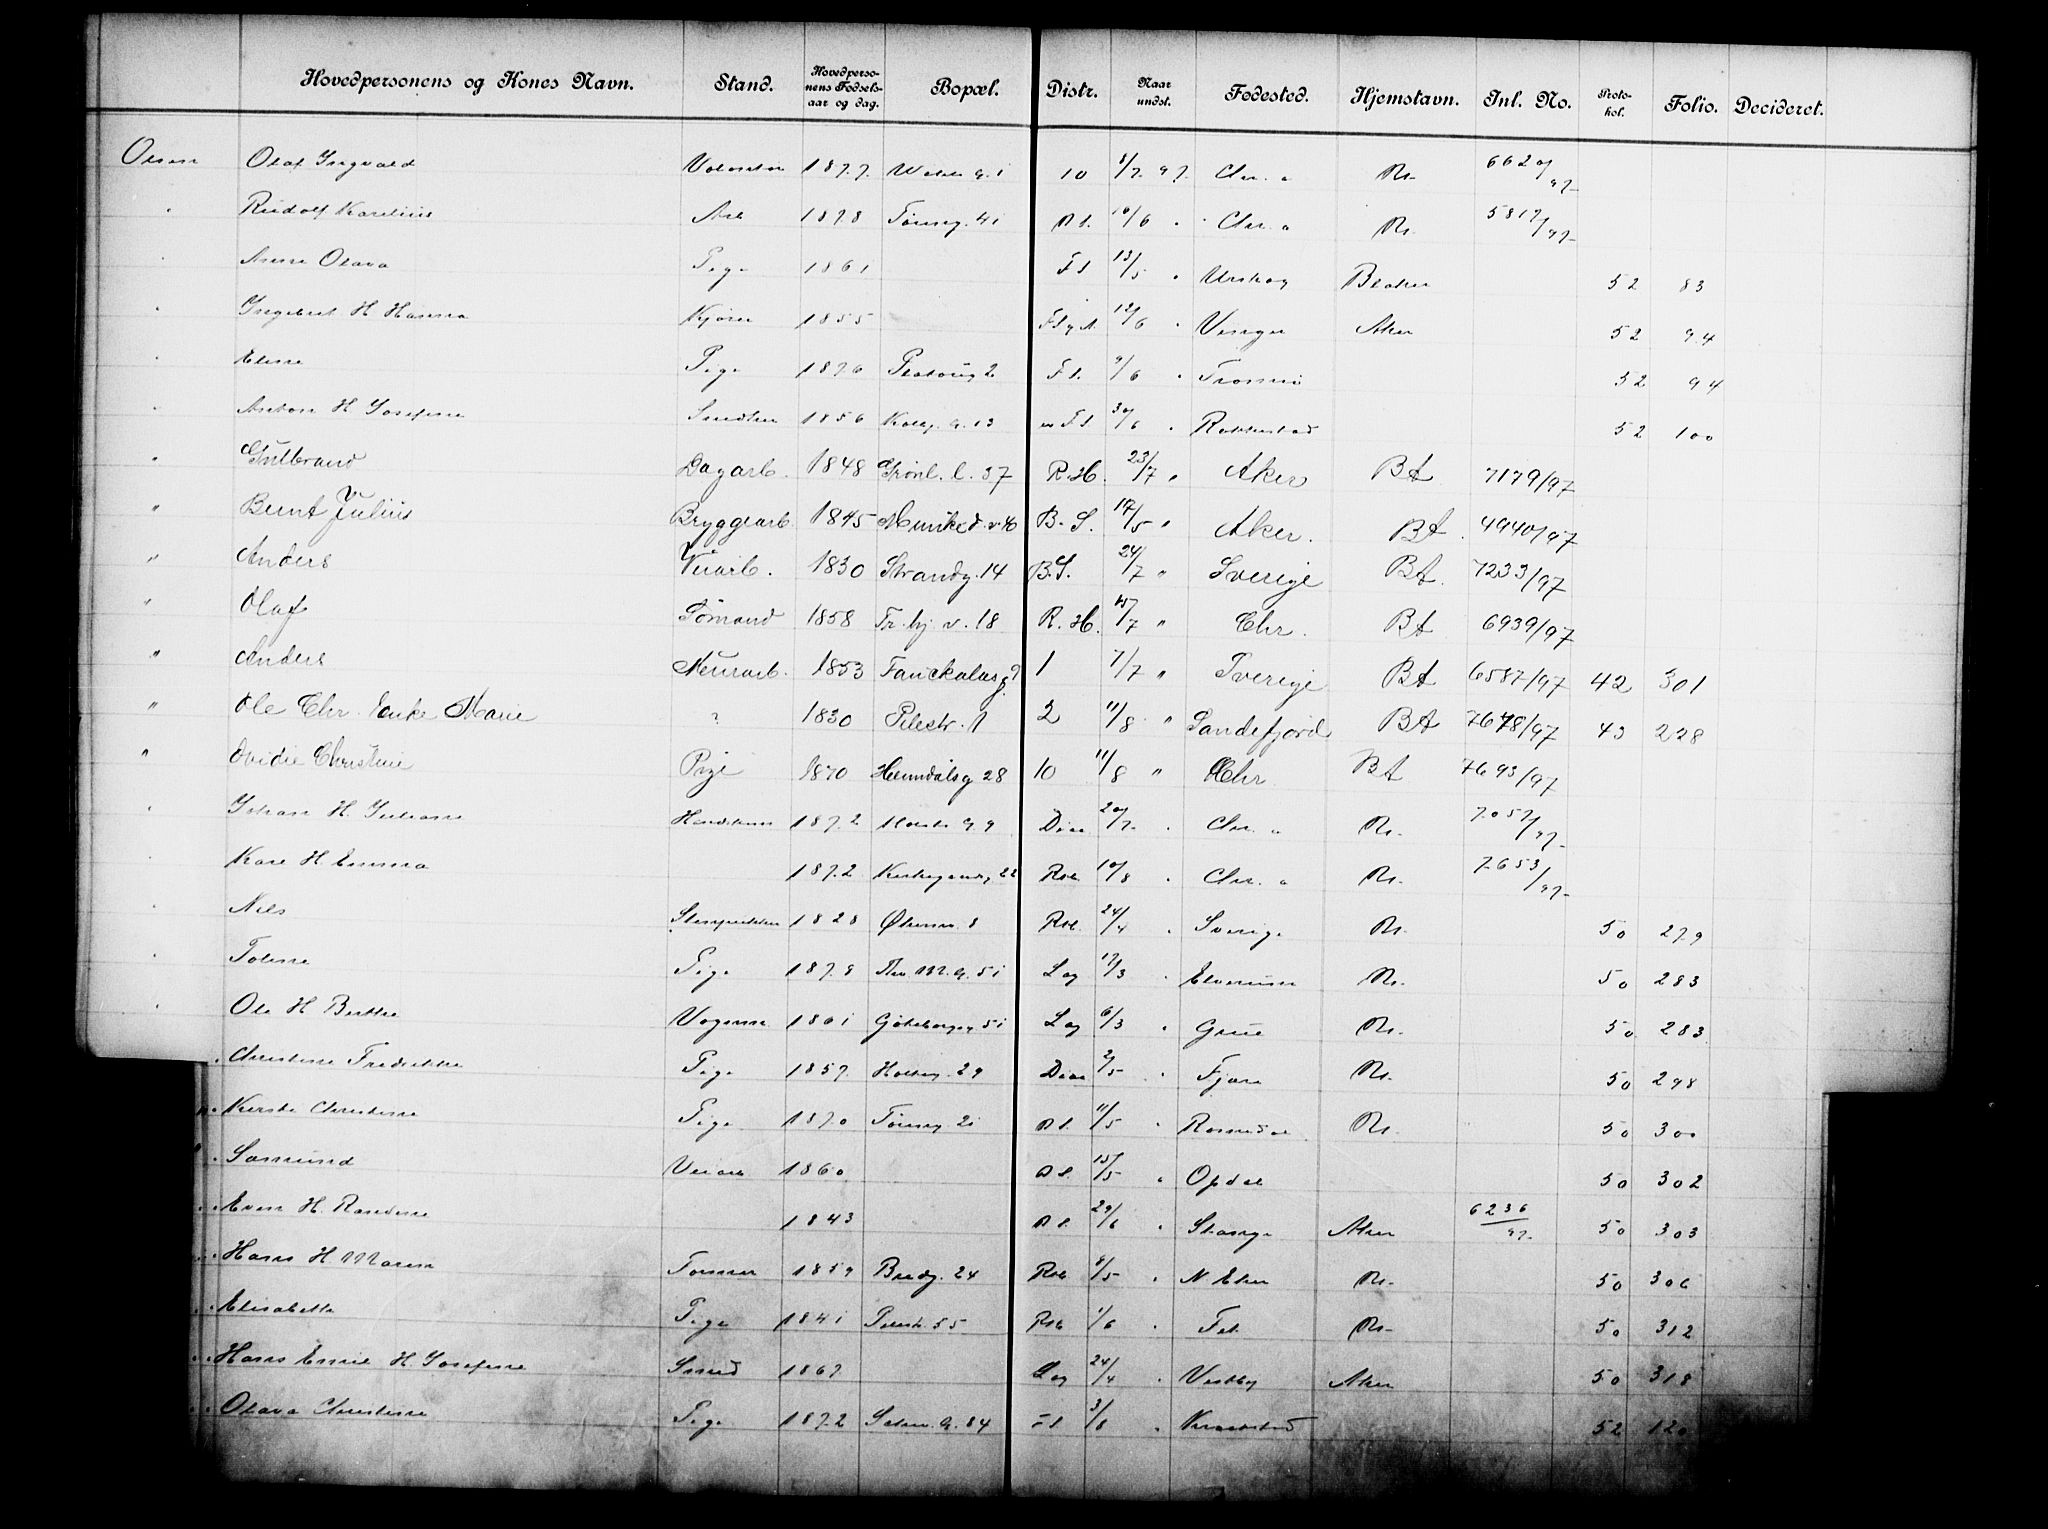 Hovedpersonens og Kones Navn. Stand. Hovedpersonens Fødselsaar og dag. Bopæl. Distr. Naar undst. Fødested. Hjemstavn. Inl. No. Protokol. Folio. Decideret.
Olsen Olaf Ingvald 1877 10 8/7 97 Chr. a 6620/97
" Rudolf Karelius Arb 1878 Tøieng. 41 10/6 " Chr. a 5817/97
" Anne Olava Pige 1861 Fl 13/5 " Urskog Blaker 52 83
" Ingebret H Hanna Kjører 1855 12/6 " Vinger Aker 52 94
" Eline Pige 1876 2 Fl. 9/6 " Tromsø 52 94
" Anton H Josefine Snedker 1856 13 Fl 30/6 " Rakkestad 52 100
" Gulbrand Dagarb. 1848 Grønl. l. 37 R.H. 23/7 " Aker BA 7179/97
" Bernt Julius Bryggearb. 1845 Munked. v. 40 B. S. 17/5 " Aker. BA. 4940/97
" Anders Veiarb. 1830 Strandg. 14 B.S. 24/7 " Sverige BA. 7233/97
" Olaf Sømand 1858 Tr. hj. v. 18 R. H. 15/7 " Chr. BA 6939/97
" Anders Murarb. 1853 1 7/7 " Sverige BA 6587/97 42 301
" Ole Chr. Enke Marie ? 1830 Pilestr. 1 2 11/8 " Sandefjord BA 7678/97 43 228
" Ovidie Christine Pige 1870 Heimdalsg 28 10 11/8 " Chr BA 7693/97
" Johan H Juliane 1872 9 20/7 " Chr. a 7057/97
" Kare H Emma 1872 Kirkegaardg 22 10/8 " Chr. a 7653/97
" Nils 1828 8 24/4 " Sverige 50 279
" Toline Pige 1878 Thv M. G. 51 Lag 17/3 " Elverum 50 283
" Ole H Berthe Vognm. 1861 Gøteborgg. 51 Lag 6/3 " Grue 50 283
" Christine Fredrikke Pige 1857 Holteg. 29 2/5 " Fjære 50 298
" Kirsti Christine Pige 1870 Tøieng 21 11/5 " Romedal 50 300
" Samund Veiarb 1860 15/5 " Opdal 50 302
" Even H. Randine 1843 29/6 " Stange Aker 6236/97 50 303
" Hans H Maren Tømmer 1859 Bredg. 24 8/5 " N Eker 50 306
" Elisabeth Pige 1841 Pilestr. 55 1/6 " Fet 50 312
" Hans Emil H Josefine Smed 1867 Lag 24/4 " Vestby Aker 50 318
" Olava Christine Pige 1872 84 Fl 3/8 " Kraakstad 52 120